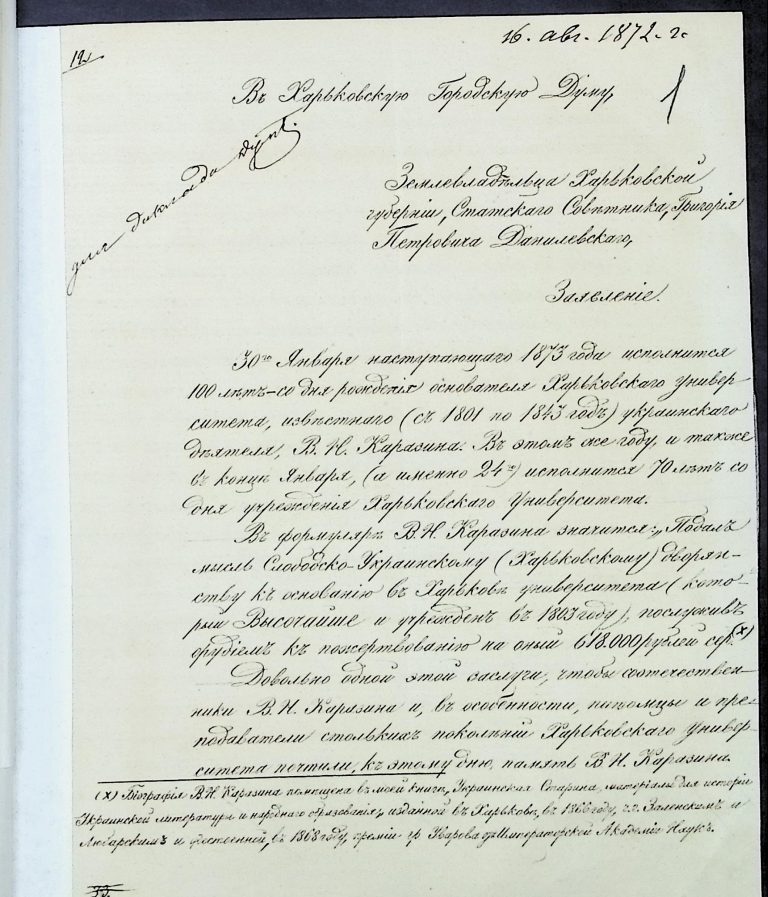 16. авг. 1872. г.
12
Въ Харьковскую Городскую Думу,
1
для доклада Думѣ.
Землевладѣльца Харьковской
губерніи, Статскаго Совѣтника, Григорія
Петровича Данилевскаго,
Заявленіе.
30го Января наступающаго 1873 года исполнится
100 лѣтъ со дня рожденія основателя Харьковскаго Универ-
ситета, извѣстнаго (съ 1801 по 1843 годъ) украинскаго
дѣятеля, В. Н. Каразина. Въ этомъ же году, и также
въ концѣ Января, (а именно 24го) исполнится 70 лѣтъ со
дня учрежденія Харьковскаго Университета.
Въ формулярѣ В. Н. Каразина значится: „Подалъ
мысль Слободско-Украинскому (Харьковскому) дворян-
ству къ основанію въ Харьковѣ университета (кото-
рый Высочайше и учрежденъ въ 1803 году), послуживъ
орудіемъ къ пожертвованію на оный 618.000 рублей сер. (х)
Довольно одной этой заслуги, чтобы соотечествен-
ники В. Н. Каразина и, въ особенности, питомцы и пре-
подаватели столькихъ поколѣній Харьковскаго Универ-
ситета почтили, къ этому дню, память В. Н. Каразина.
(х) Біографія В. Н. Каразина помѣщена въ моей книгѣ, Украинская Старина, матеріалы для исторіи
Украинской литературы и народнаго образованія, изданной въ Харьковѣ, въ 1866 году, г.г. Заленскимъ и
Любарскимъ и удостоенной, въ 1868 году, преміи гр. Уварова отъ Императорской Академіи Наукъ.